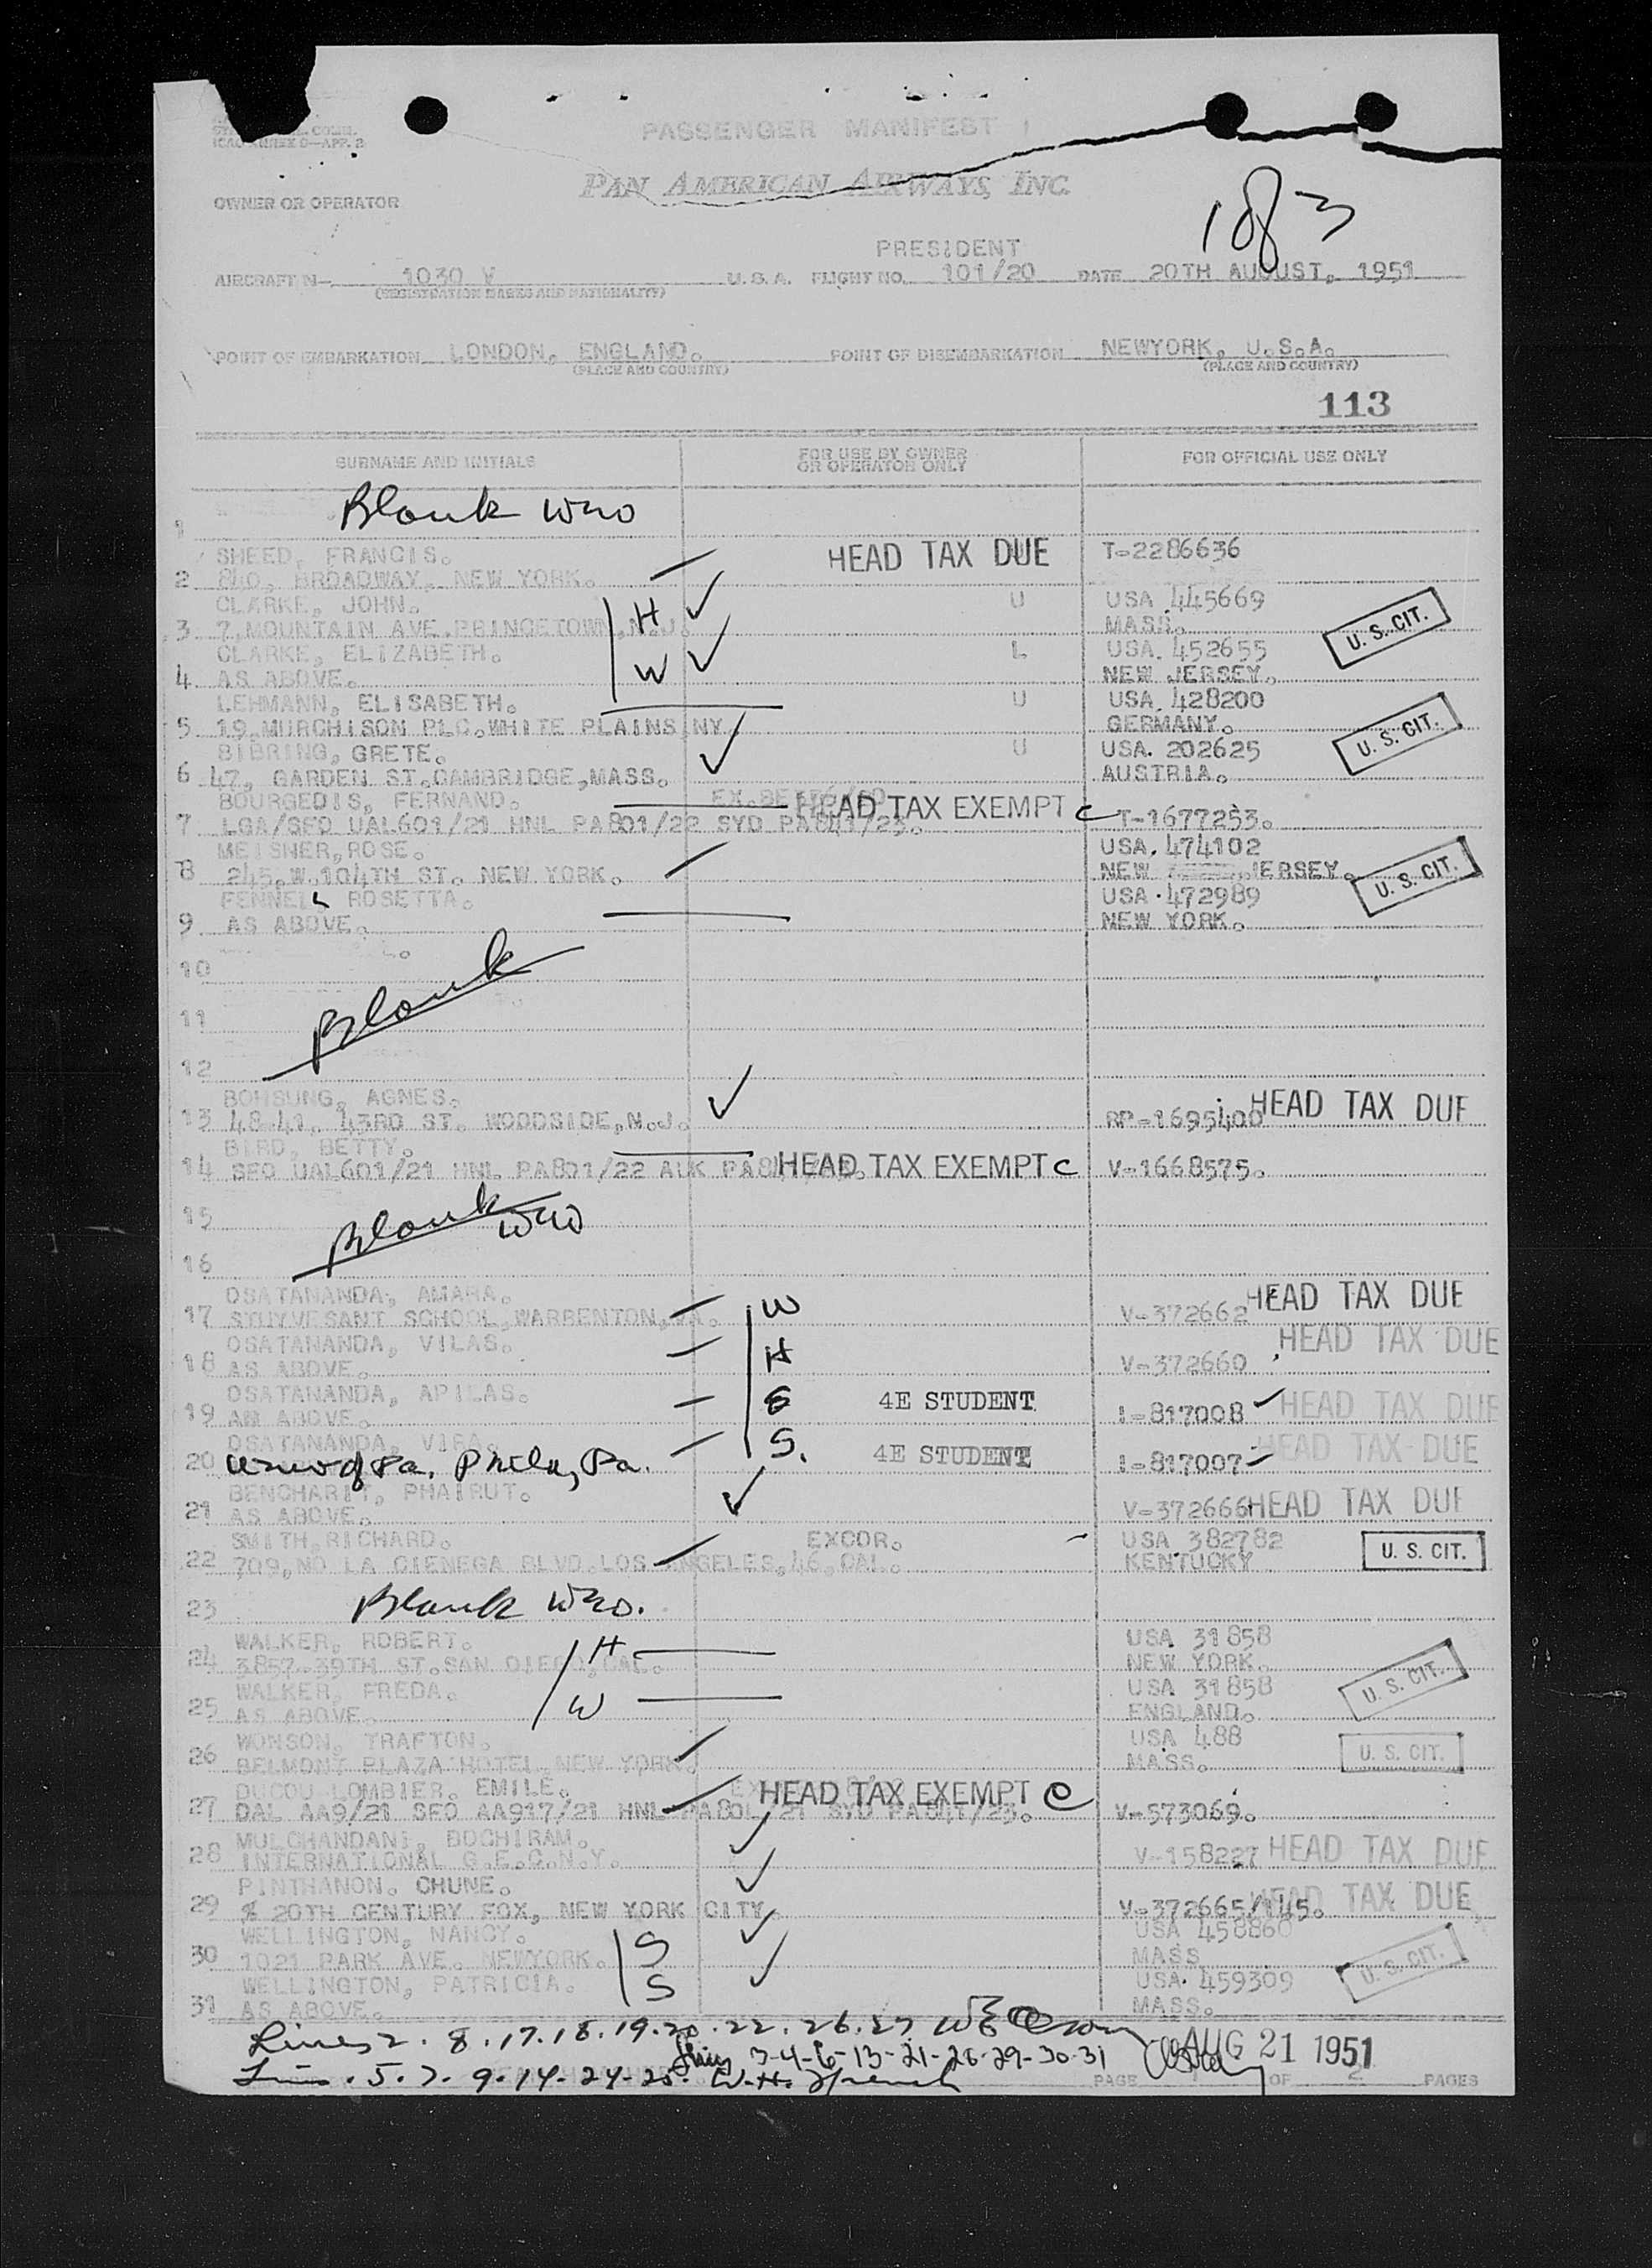 ICAO ANNEX 9—APP. 2
PASSENGER MANIFEST
PAN AMERICAN AIRWAYS, INC.
OWNER OR OPERATOR
183
PRESIDENT
AIRCRAFT N— 1030 V U.S.A. FLIGHT NO. 101/20 DATE 20TH AUGUST, 1951
(REGISTRATION MARKS AND NATIONALITY)
POINT OF EMBARKATION LONDON, ENGLAND. POINT OF DISEMBARKATION NEWYORK, U.S.A.
(PLACE AND COUNTRY) (PLACE AND COUNTRY)
113
SURNAME AND INITIALS FOR USE BY OWNER OR OPERATOR ONLY FOR OFFICIAL USE ONLY
1 Blank
SHEED, FRANCIS. HEAD TAX DUE T-2286636
2 840, BROADWAY, NEW YORK.
CLARKE, JOHN. H U USA 445669
3 7,MOUNTAIN AVE.PRINCETOWN,N.J. MASS. U. S. CIT.
CLARKE, ELIZABETH. W L USA. 452655
4 AS ABOVE. NEW JERSEY.
LEHMANN, ELISABETH. U USA 428200
5 19,MURCHISON PLC.WHITE PLAINS NY. GERMANY. U. S. CIT.
BIBRING, GRETE. U USA. 202625
6 47, GARDEN ST.CAMBRIDGE,MASS. AUSTRIA.
BOURGEDIS, FERNAND. HEAD TAX EXEMPT C T-1677253.
7 LGA/SFO UAL601/21 HNL PA801/22 SYD PA841/23.
MEISNER,ROSE. USA. 474102
8 245,W.104TH ST. NEW YORK. NEW JERSEY. U. S. CIT.
FENNELL ROSETTA. USA.472989
9 AS ABOVE. NEW YORK.
10
11 Blank
12
BOHSUNG, AGNES.
13 48-41, 43RD ST. WOODSIDE,N.J. RP-1695400 HEAD TAX DUE
BIRD, BETTY.
14 SFO UAL601/21 HNL PA801/22 AUK HEAD TAX EXEMPT C V-1668575.
15 Blank
16
OSATANANDA, AMARA. W
17 STUYVESANT SCHOOL,WARRENTON,VA. V-372662 HEAD TAX DUE
OSATANANDA, VILAS. H HEAD TAX DUE
18 AS ABOVE. V-372660
OSATANANDA, APILAS. S 4E STUDENT
19 AS ABOVE. I-817008 HEAD TAX DUE
OSATANANDA, VIRA. S. 4E STUDENT
20 Univ of Pa. Phila, Pa. I-817007 HEAD TAX DUE
BENCHARIT, PHAIRUT.
21 AS ABOVE. V-372666 HEAD TAX DUE
SMITH,RICHARD. EXCOR. USA 382782
22 709,NO LA CIENEGA BLVD.LOS ANGELES,46,CAL. KENTUCKY U. S. CIT.
23 Blank
WALKER, ROBERT. H USA 31858
24 3857-39TH ST.SAN DIEGO,CAL. NEW YORK.
WALKER, FREDA. W USA 31858 U. S. CIT.
25 AS ABOVE. ENGLAND.
WONSON, TRAFTON. USA 488
26 BELMONT PLAZA HOTEL,NEW YORK. MASS. U. S. CIT.
DUCOU LOMBIER. EMILE. HEAD TAX EXEMPT C
27 DAL AA9/21 SFO AA917/21 HNL PA801/21 SYD PA841/23. V-573069.
MULCHANDANI, BOCHIRAM.
28 INTERNATIONAL G.E.C.N.Y. V-158227 HEAD TAX DUE
PINTHANON. CHUNE.
29 % 20TH CENTURY FOX, NEW YORK CITY. V-372665/145. HEAD TAX DUE
WELLINGTON, NANCY. S USA 458860
30 1021 PARK AVE. NEWYORK. MASS
WELLINGTON, PATRICIA. S USA. 459309 U. S. CIT.
31 AS ABOVE. MASS.
Lines 2. 8. 17. 18. 19. 20. 22. 26. 27
Lines 3-4-6-13-21-28-29-30-31
AUG 21 1951
5. 7. 9. 14. 24-25. W.H.
PAGE OF 2 PAGES